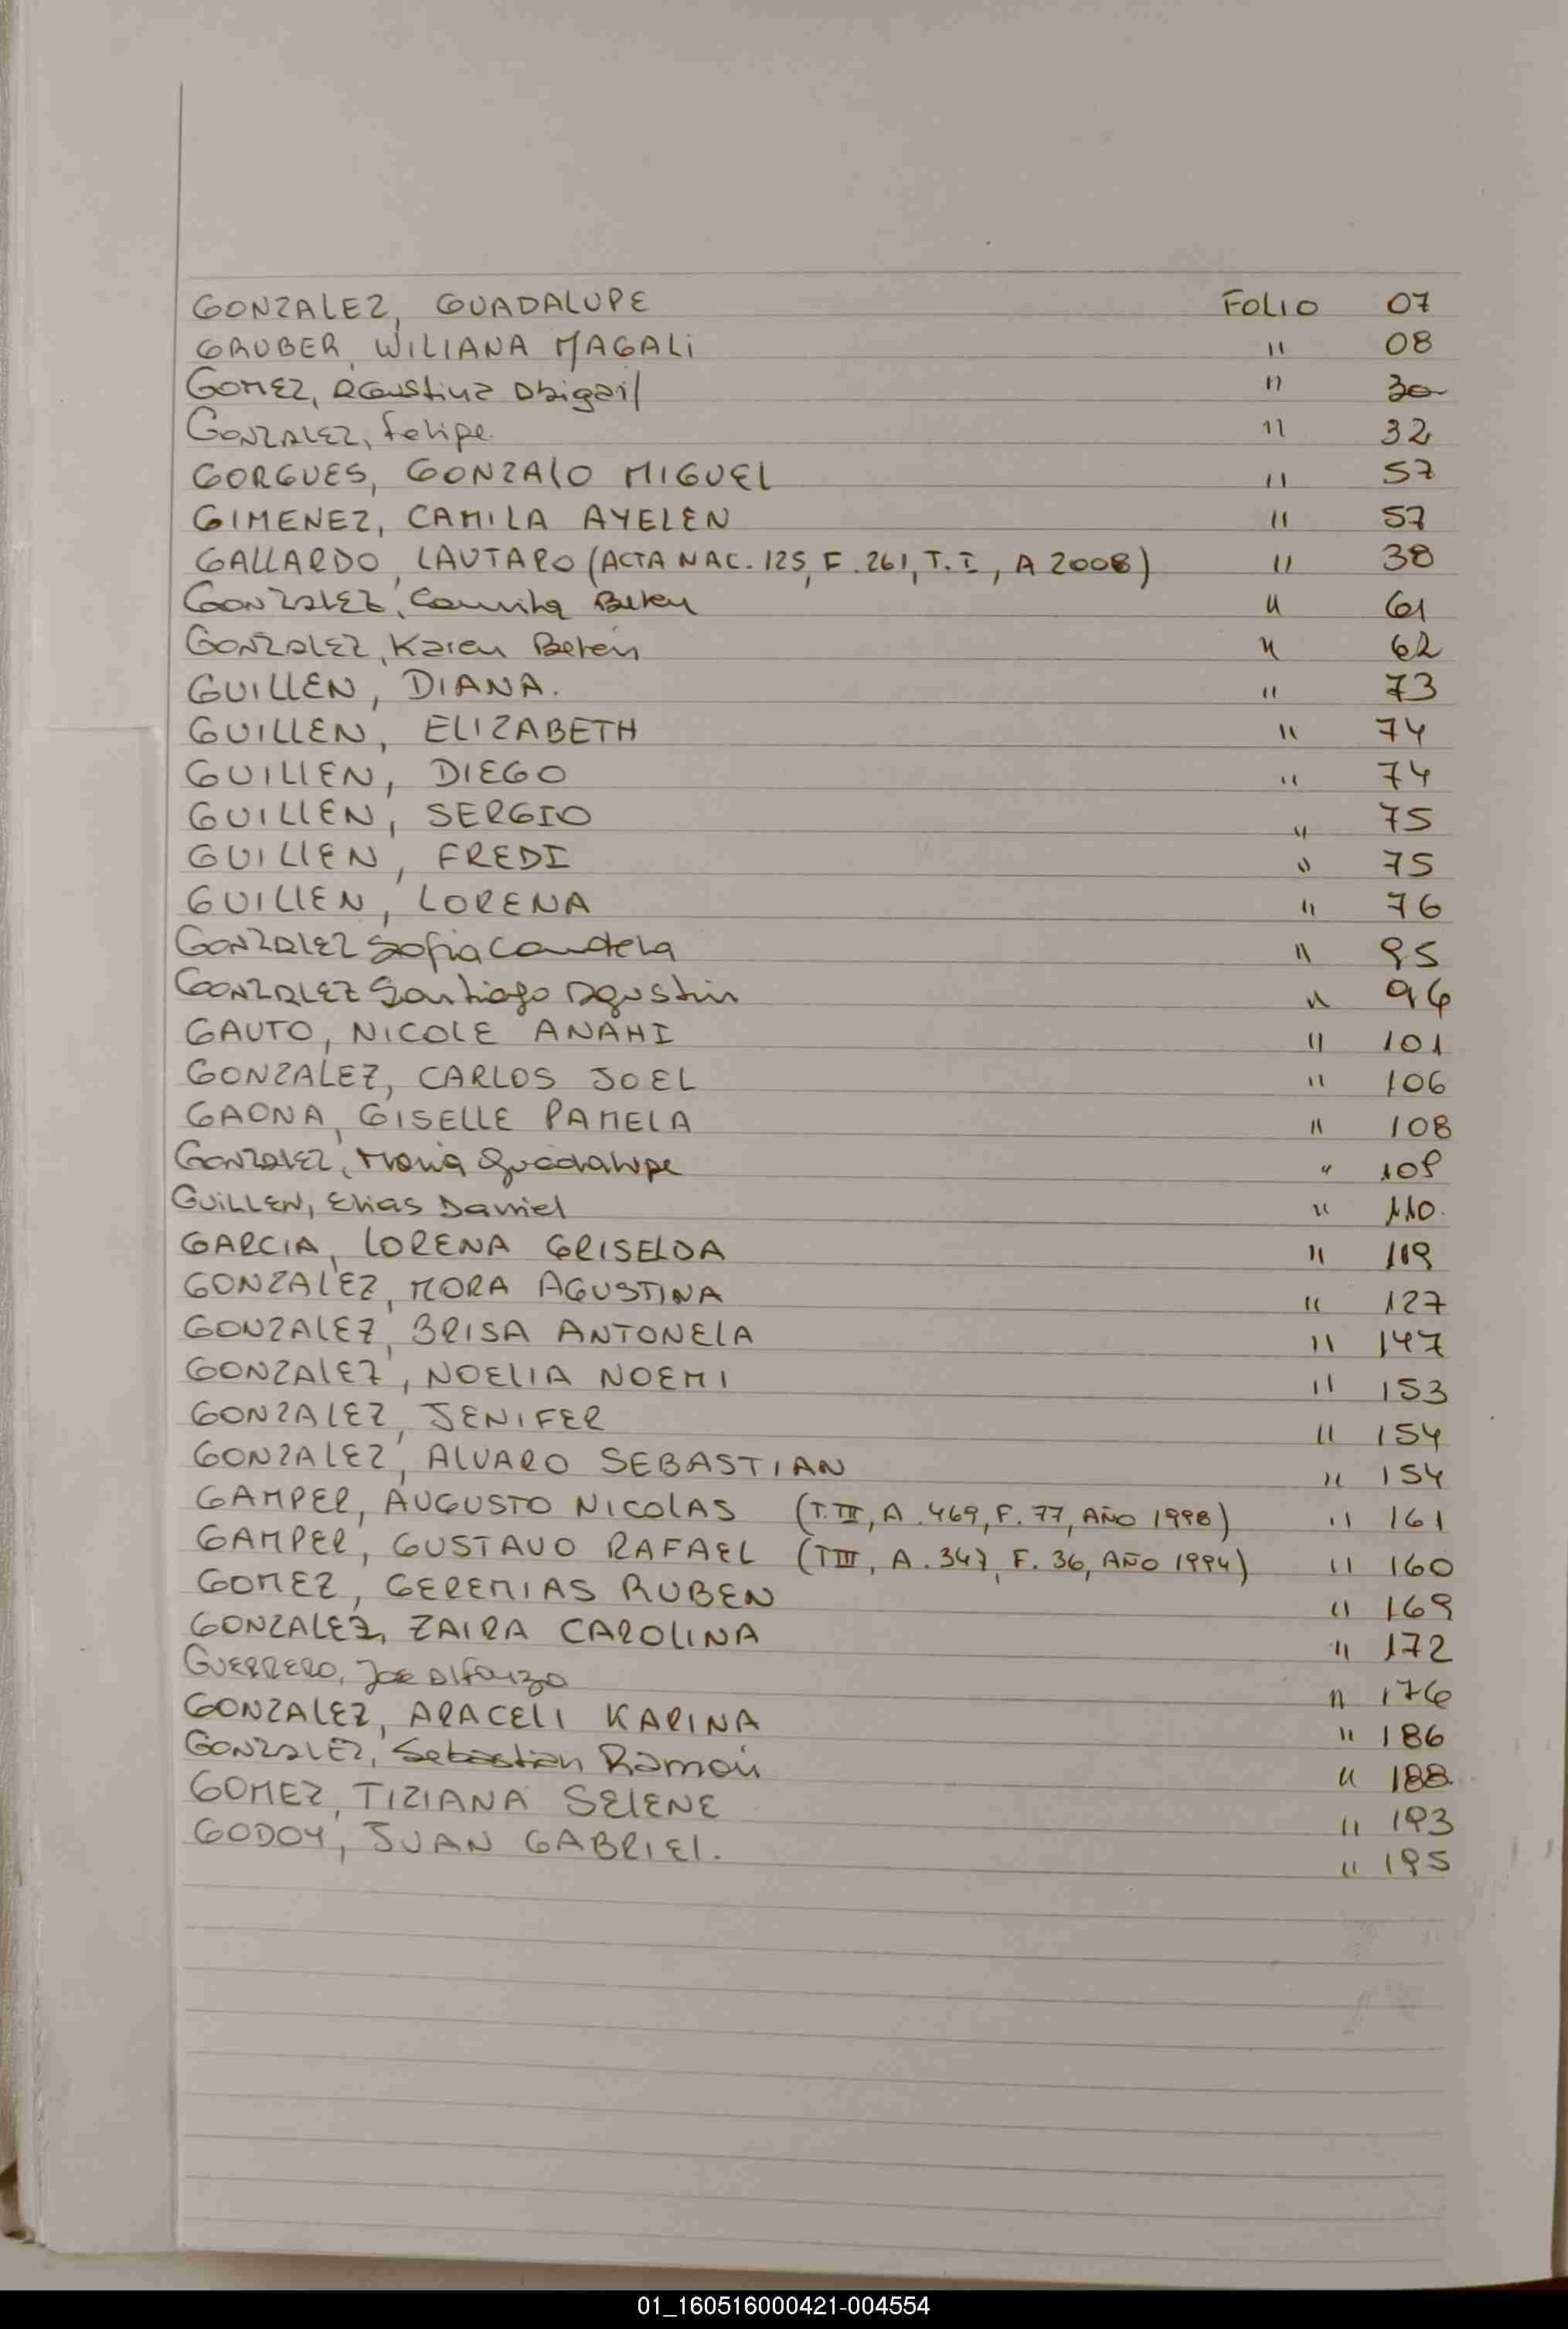 GONZALEZ, GUADALUPE FOLIO 07
GRUBER, WILIANA MAGALi " 08
GOMEZ, Agustina Abigail " 30
GONZALEZ, Felipe. " 32
GORGUES, GONZALO MIGUEL " 57
GIMENEZ, CAMILA AYELEN " 57
GALLARDO, LAUTARO (ACTA NAC. 125, F. 261, T. I, A 2008) " 38
GONZALEZ, Camila Belen " 61
GONZALEZ, Karen Belén " 62
GUILLEN, DIANA. " 73
GUILLEN, ELIZABETH " 74
GUILLEN, DIEGO " 74
GUILLEN, SERGIO " 75
GUILLEN, FREDI " 75
GUILLEN, LORENA " 76
GONZALEZ Sofia Candela " 95
GONZALEZ Santiago Agustin " 96
GAUTO, NICOLE ANAHI " 101
GONZALEZ, CARLOS JOEL " 106
GAONA, GISELLE PAMELA " 108
GONZALEZ, Maria Guadalupe " 109
GUiLLEN, Elias Daniel " 110.
GARCIA, LORENA GRISELDA " 119
GONZALEZ, MORA AGUSTINA " 127
GONZALEZ, BRISA ANTONELA " 147
GONZALEZ, NOELIA NOEMI " 153
GONZALEZ, JENIFER " 154
GONZALEZ, ALVARO SEBASTIAN " 154
GAMPER, AUGUSTO NICOLAS (T. III, A. 469, F. 77, AÑO 1998) " 161
GAMPER, GUSTAVO RAFAEL (T III, A. 347, F. 36, AÑO 1994) " 160
GOMEZ, GEREMIAS RUBEN " 169
GONZALEZ, ZAIRA CAROLINA " 172
GUERRERO, Jose Alfonzo " 176
GONZALEZ, ARACELI KARINA " 186
GONZALEZ, Sebastián Ramón " 188.
GOMEZ, TIZIANA SELENE " 193
GODOY, JUAN GABRIEL. " 195
01_160516000421-004554